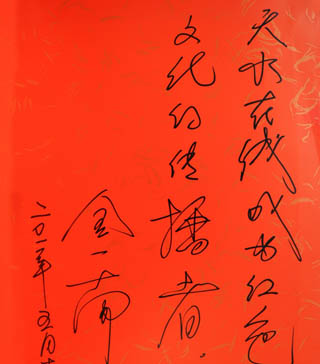 天水在线成为红色
文化的传播者。
金一南
二〇一一年五月